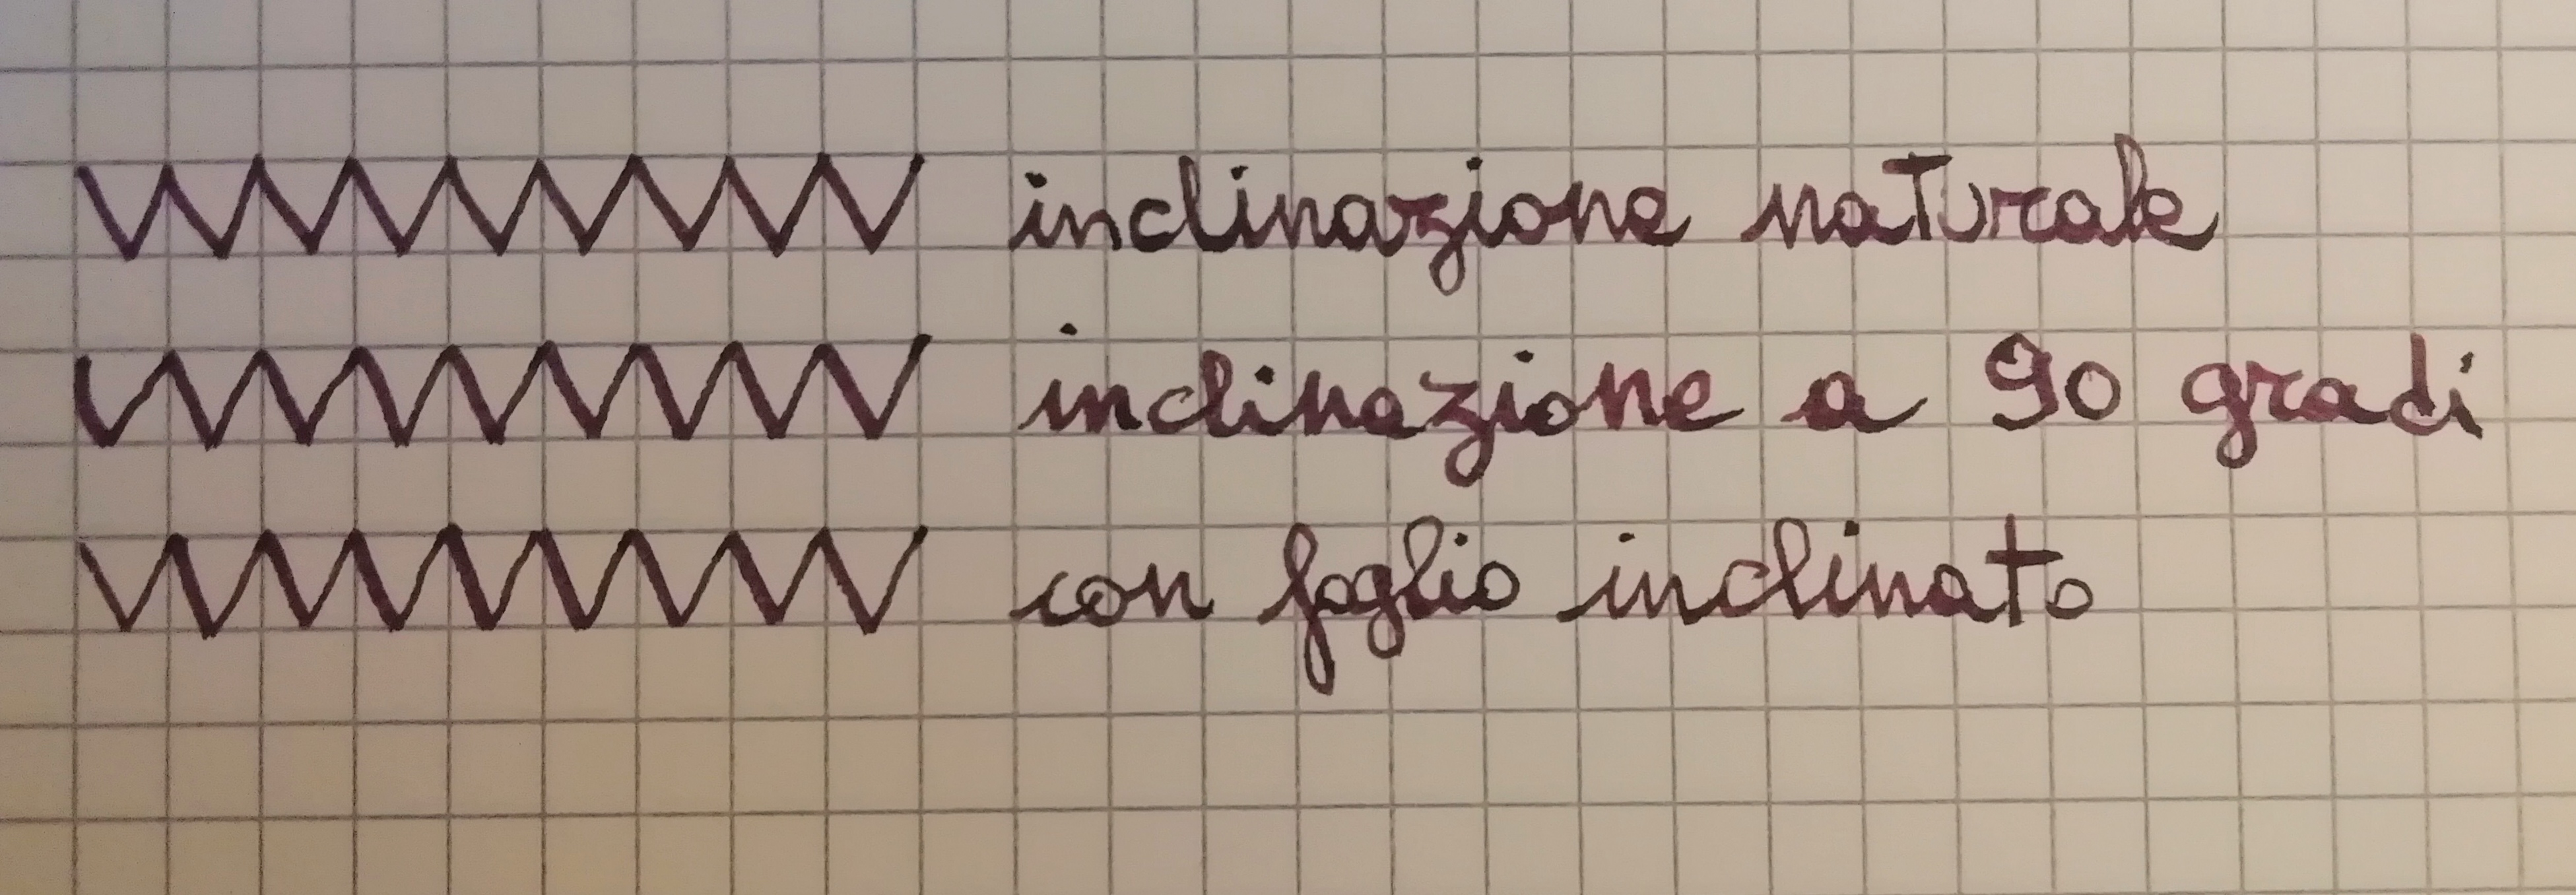 inclinazione naturale
inclinazione a 90 gradi
con foglio inclinato